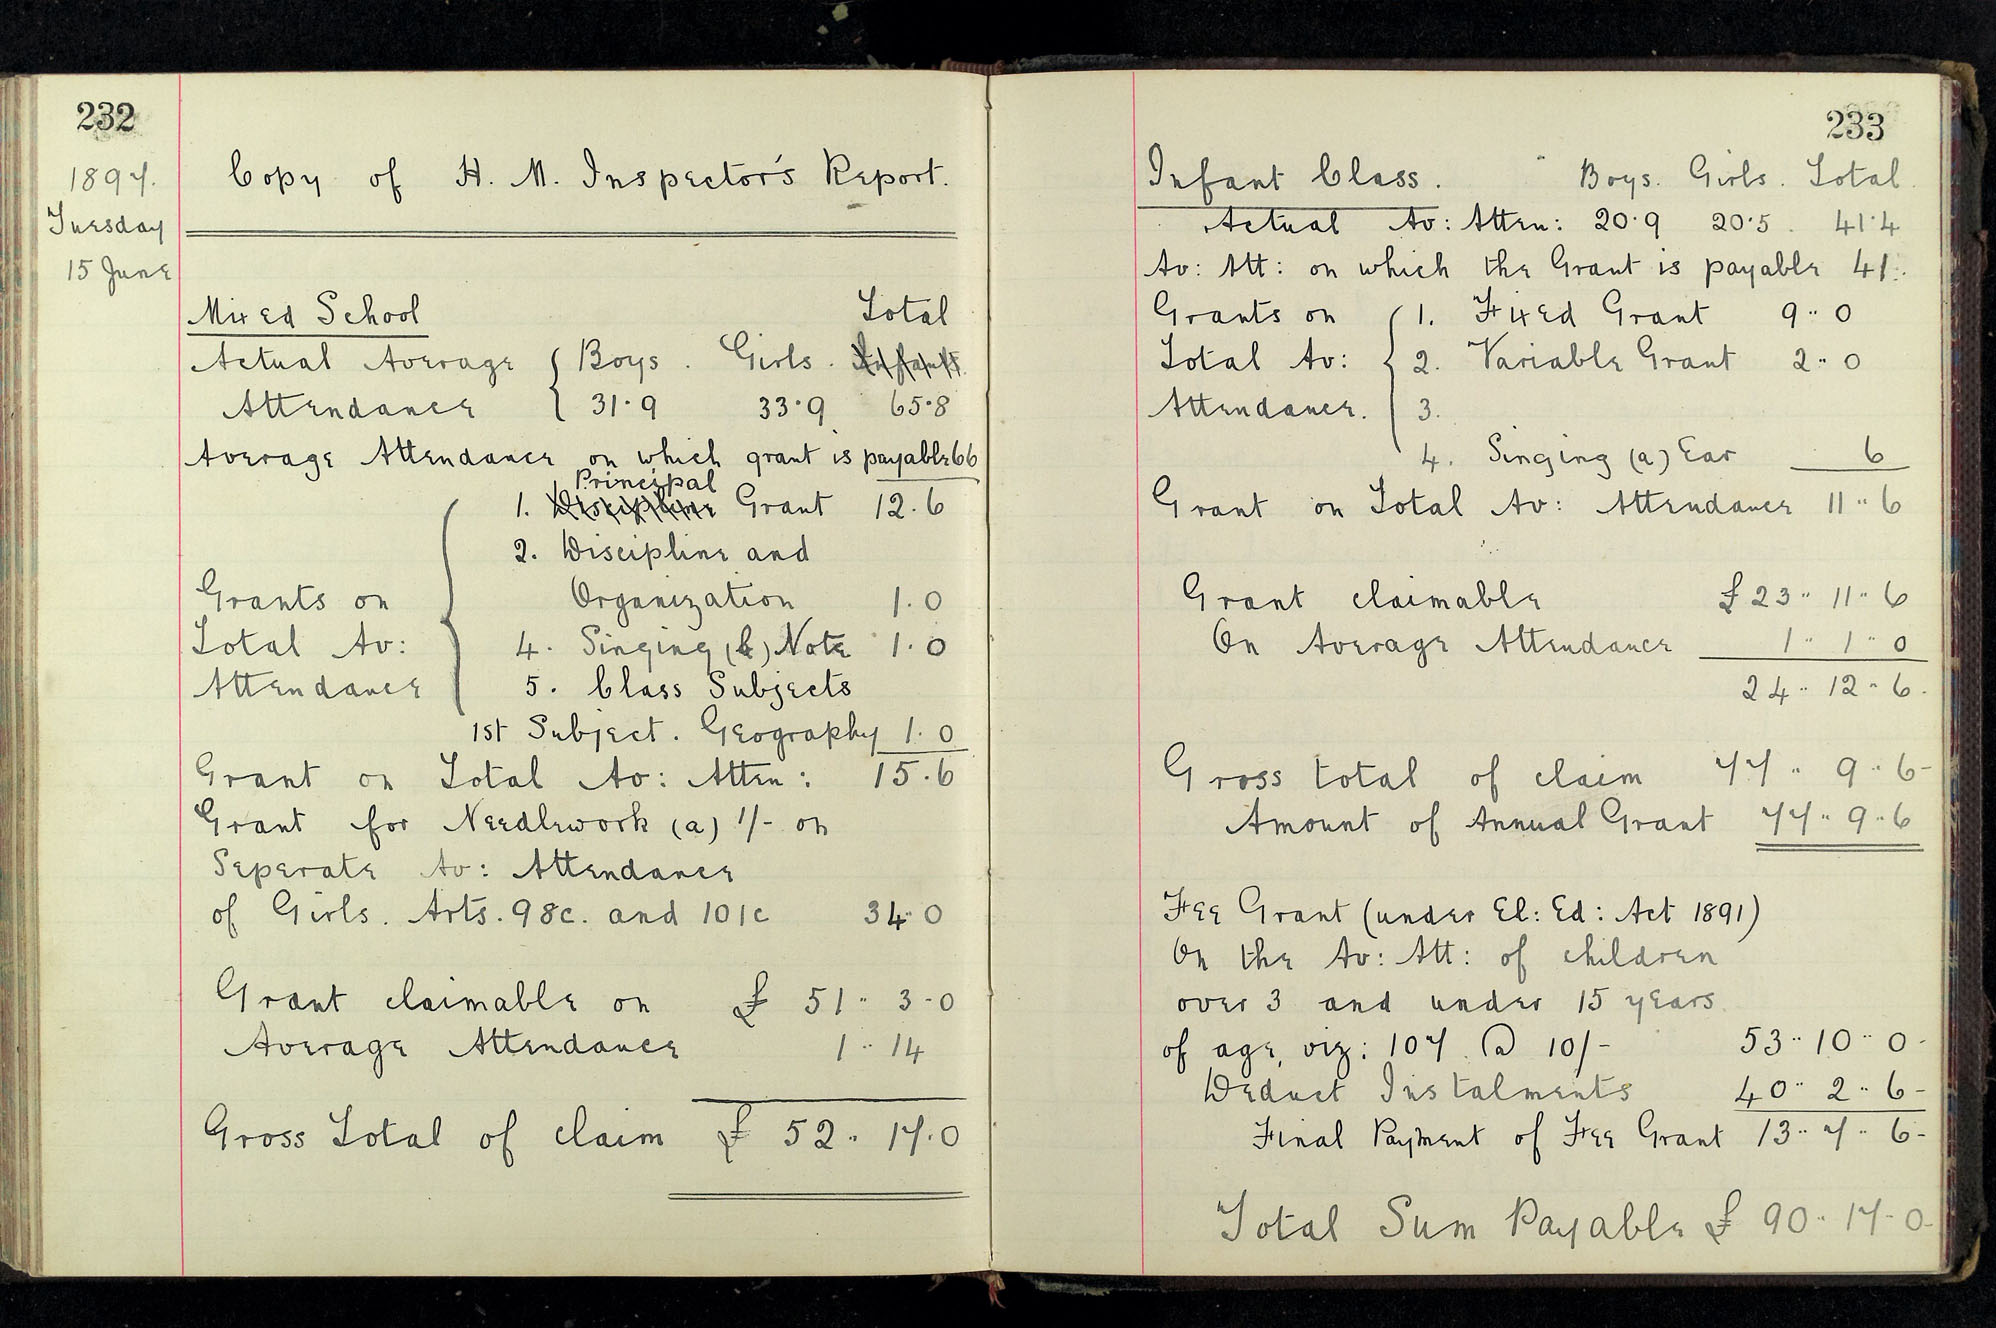 232
1897.
Tuesday
15 June
Copy of H. M. Inspector's Report.
Mixed School Total
Actual Average { Boys . Girls . Infants.
Attendance 31·9 33·9 65·8
Average Attendance on which grant is payable 66
Principal
1. Discipline Grant 12.6
2. Discipline and
Grants on Organization 1.0
Total Av: 4. Singing (b) Note 1.0
Attendance 5. Class Subjects
1st Subject. Geography 1.0
Grant on Total Av: Atten: 15.6
Grant for Needlework (a) 1/- on
Seperate Av: Attendance
of Girls. Arts. 98c. and 101c 34·0
Grant claimable on £ 51 " 3-0
Average Attendance 1 " 14
Gross Total of claim £ 52 " 17.0
233
Infant Class. Boys. Girls. Total.
Actual Av: Atten: 20·9 20·5 41·4
Av: Att: on which the Grant is payable 41.
Grants on { 1. Fixed Grant 9 " 0
Total Av: 2. Variable Grant 2 " 0
Attendance. 3.
4. Singing (a) Ear 6
Grant on Total Av: Attendance 11 " 6
Grant claimable £ 23 " 11 " 6
On Average Attendance 1 " 1 " 0
24 " 12 " 6.
Gross total of claim 77 " 9 " 6-
Amount of Annual Grant 77 " 9 " 6
Fee Grant (under El: Ed: Act 1891)
On the Av: Att: of children
over 3 and under 15 years
of age, viz: 107 @ 10/- 53 " 10 " 0-
Deduct Instalments 40 " 2 " 6-
Final Payment of Fee Grant 13 " 7 " 6-
Total Sum Payable £ 90 " 17 - 0-